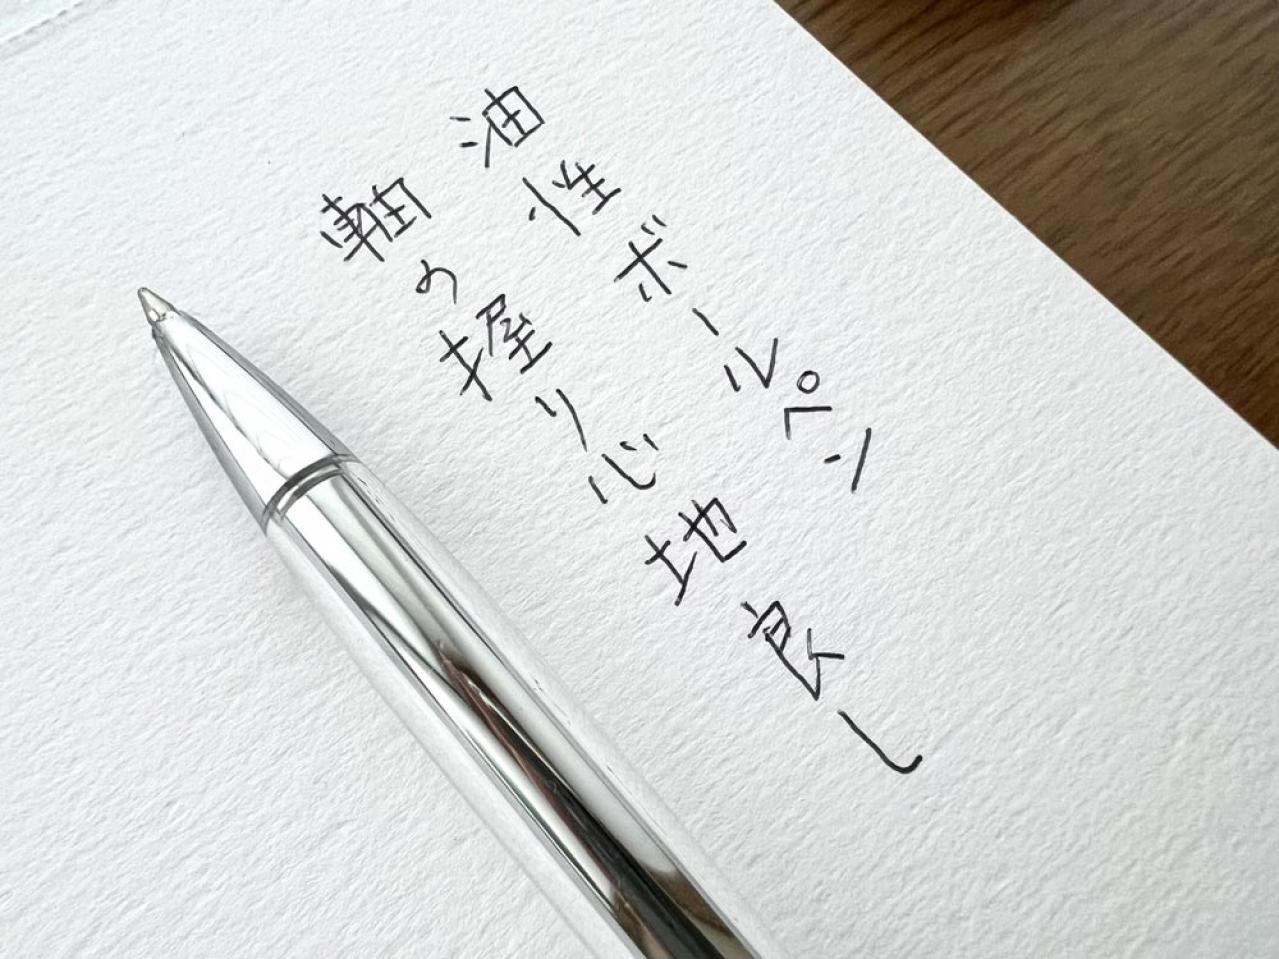 油性ボールペン
軸の握り心地良し